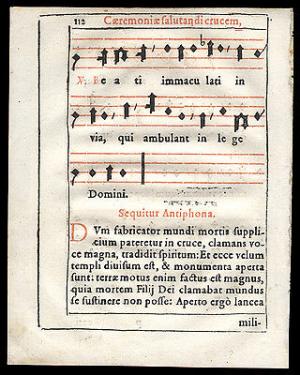 112 Cæremoniæ salutandi crucem,
℣. Be a ti immacu lati in
via, qui ambulant in le ge
Domini.
Sequitur Antiphona.
DVm fabricator mundi mortis suppli-
cium pateretur in cruce, clamans vo-
ce magna, tradidit spiritum: Et ecce velum
templi divisum est, & monumenta aperta
sunt: terræ motus enim factus est magnus,
quia mortem Filij Dei clamabat mundus
se sustinere non posse: Aperto ergò lancea
mili-